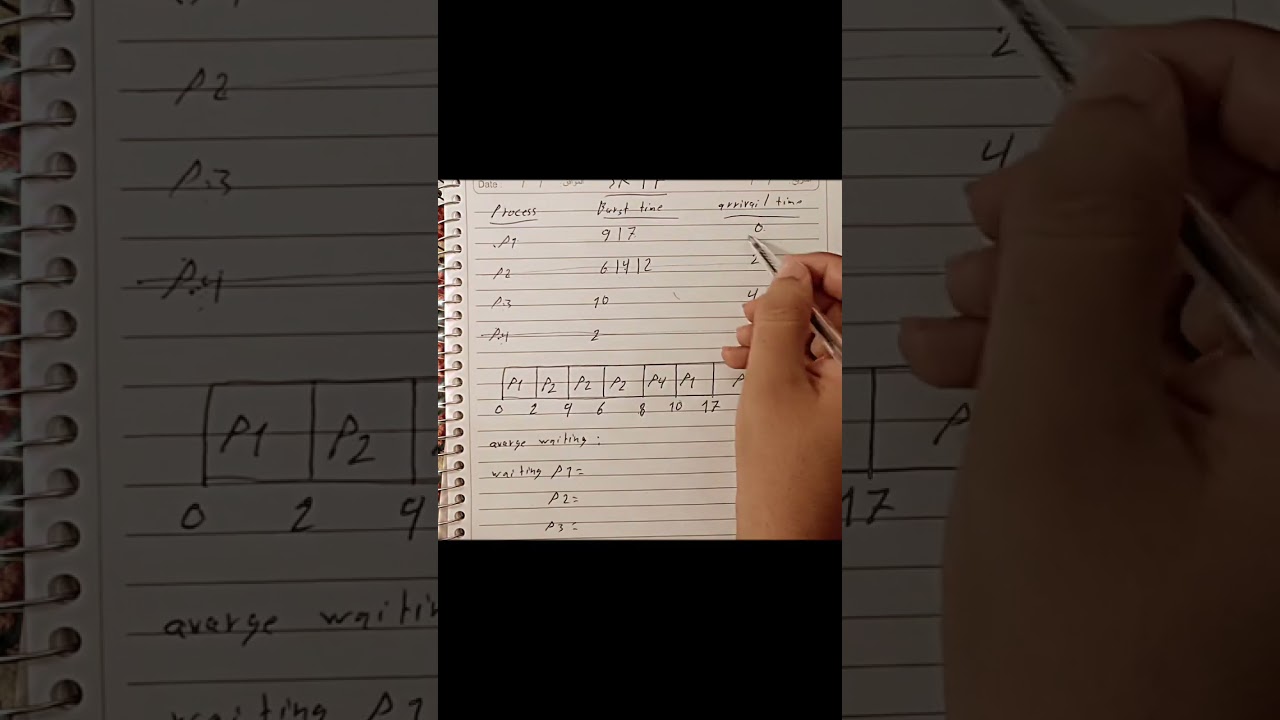 Date:
Process Burst time arrival time
P1 9|7 0
P2 6|4|2 2
P3 10 4
P4 2
P1 P2 P2 P2 P4 P1 P
0 2 4 6 8 10 17
avarge waiting :
waiting P1=
P2=
P3=